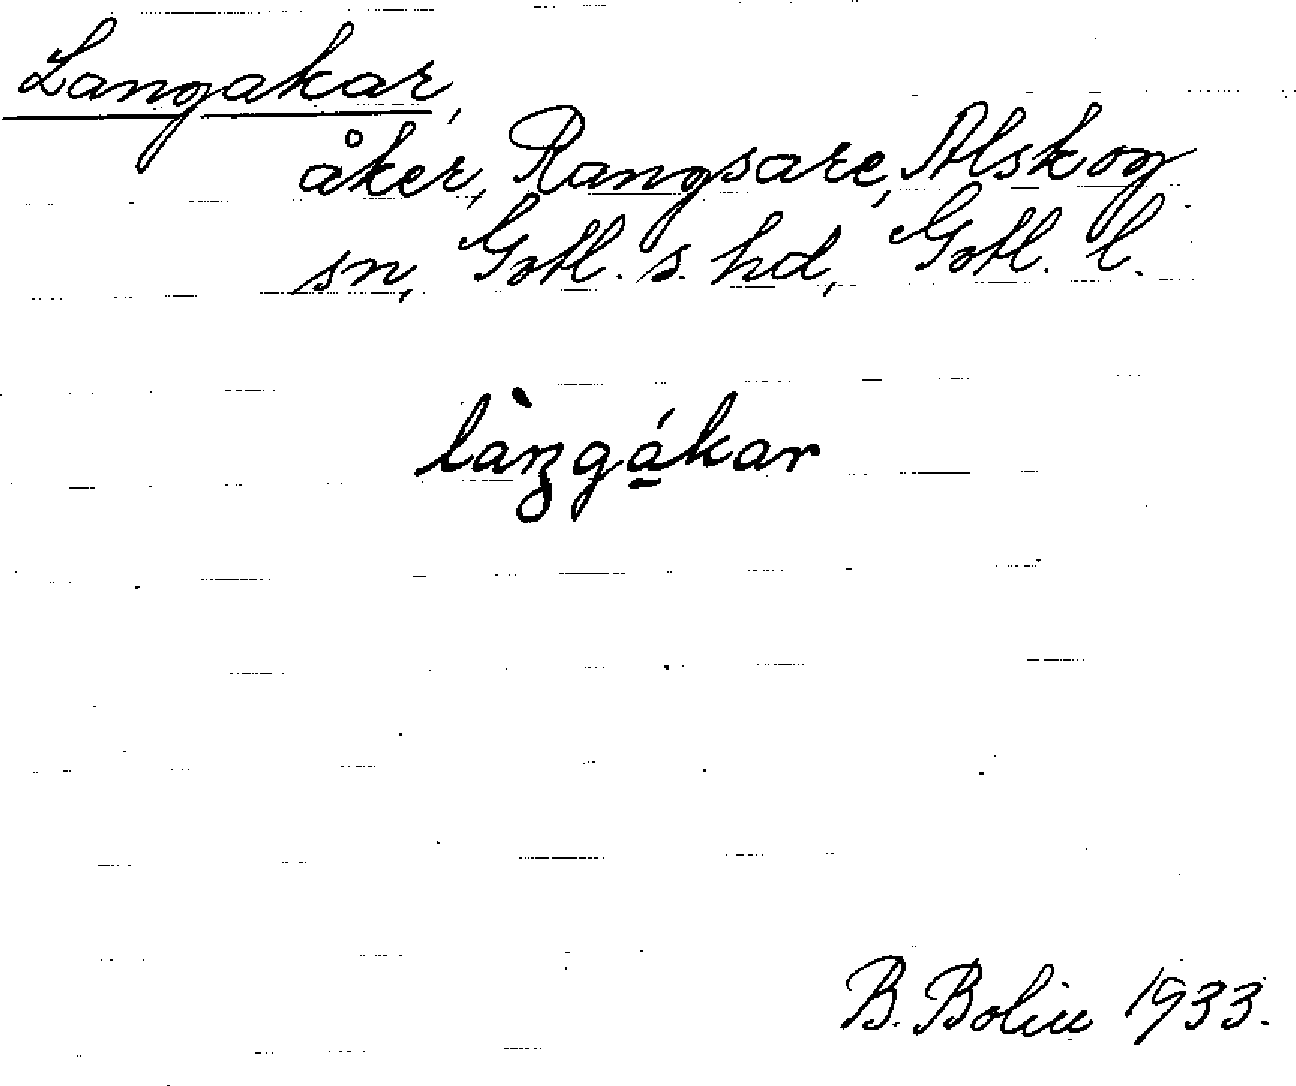 Langakar,
åker, Rangsare, Alskog
sn, Gotl. s. hd, Gotl. l.
làŋgákar
B. Bolin 1933.